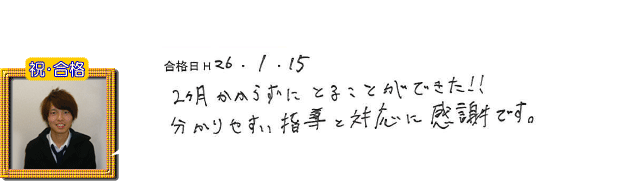 祝・合格
合格日 H26.1.15
2ヶ月かからずにとることができた!!
分かりやすい指導と対応に感謝です。